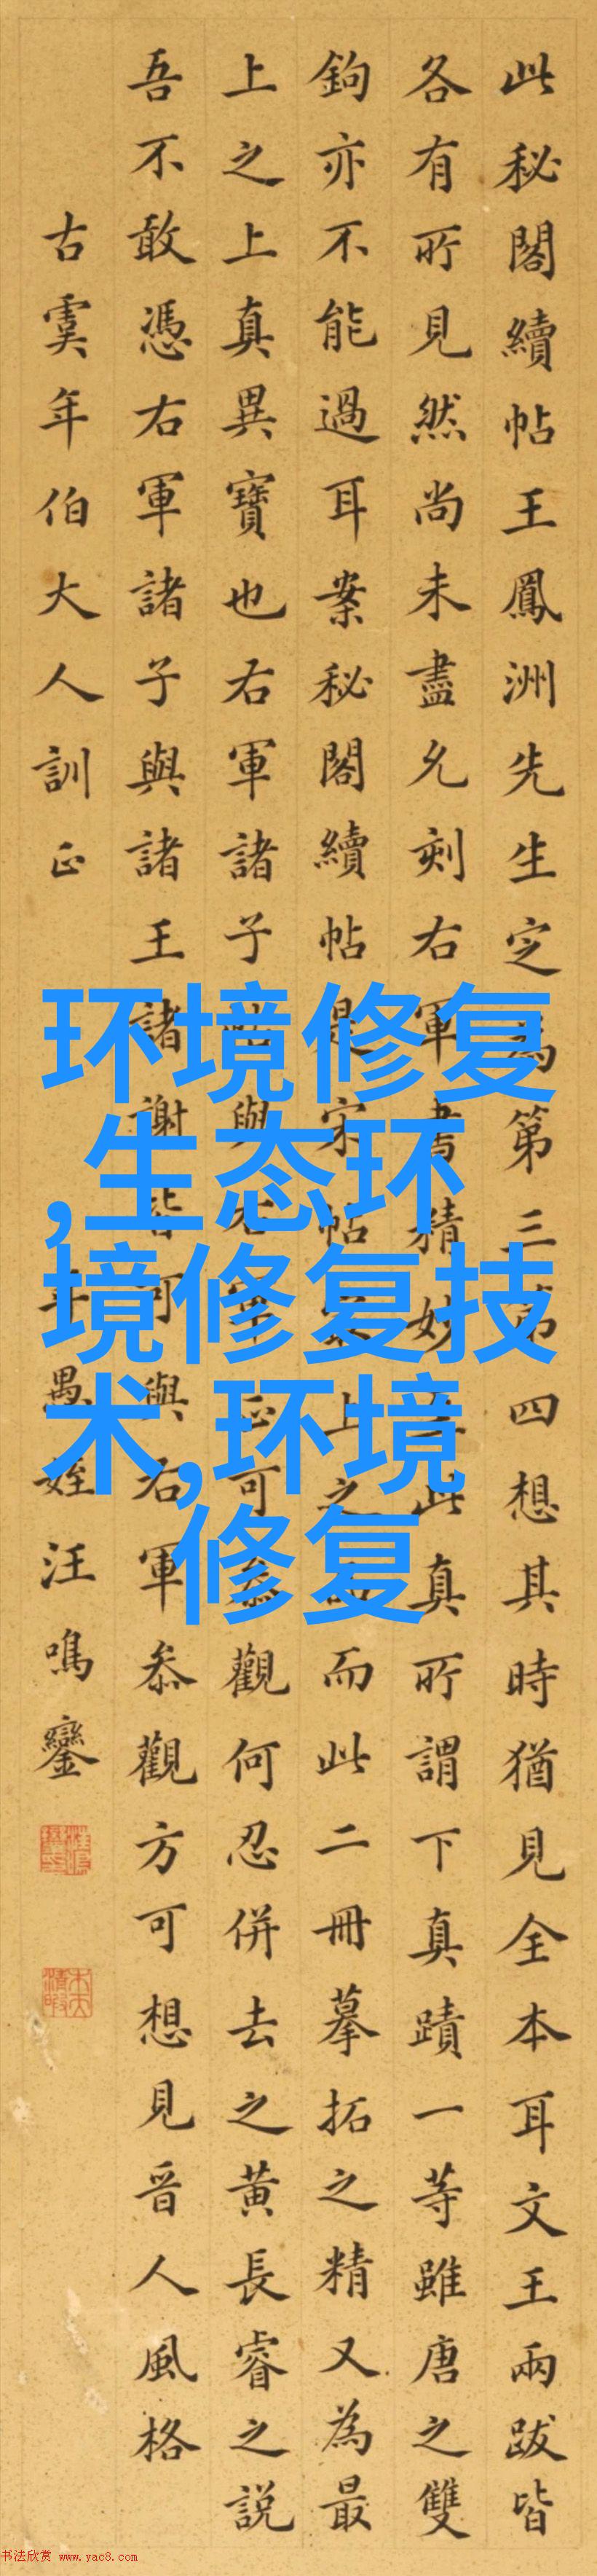 此秘閣續帖王鳳洲先生定為第三第四想其時猶見全本耳文王兩跋皆
各有所見然尚未盡允刻右軍書精妙此真所謂下真蹟一等雖唐之雙
鉤亦不能過耳案秘閣續帖是宋帖最上之而此二冊摹拓之精又為最
上之上真異寶也右軍諸子帖與右軍正可參觀何忍併去之黃長睿之說
吾不敢憑右軍諸子與諸王諸謝皆可與右軍叅觀方可想見晉人風格
古虞年伯大人訓正
年愚姪汪鳴鑾
环境修复
,生态环
境修复技
术,环境
修复
书法欣赏 www.yac8.com